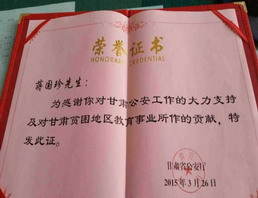 荣誉证书
HONORARY CREDENTIAL
蒋国珍先生：
为感谢你对甘肃公安工作的大力支持
及对甘肃贫困地区教育事业所作的贡献，特
发此证。
甘肃省公安厅
2015年3月26日